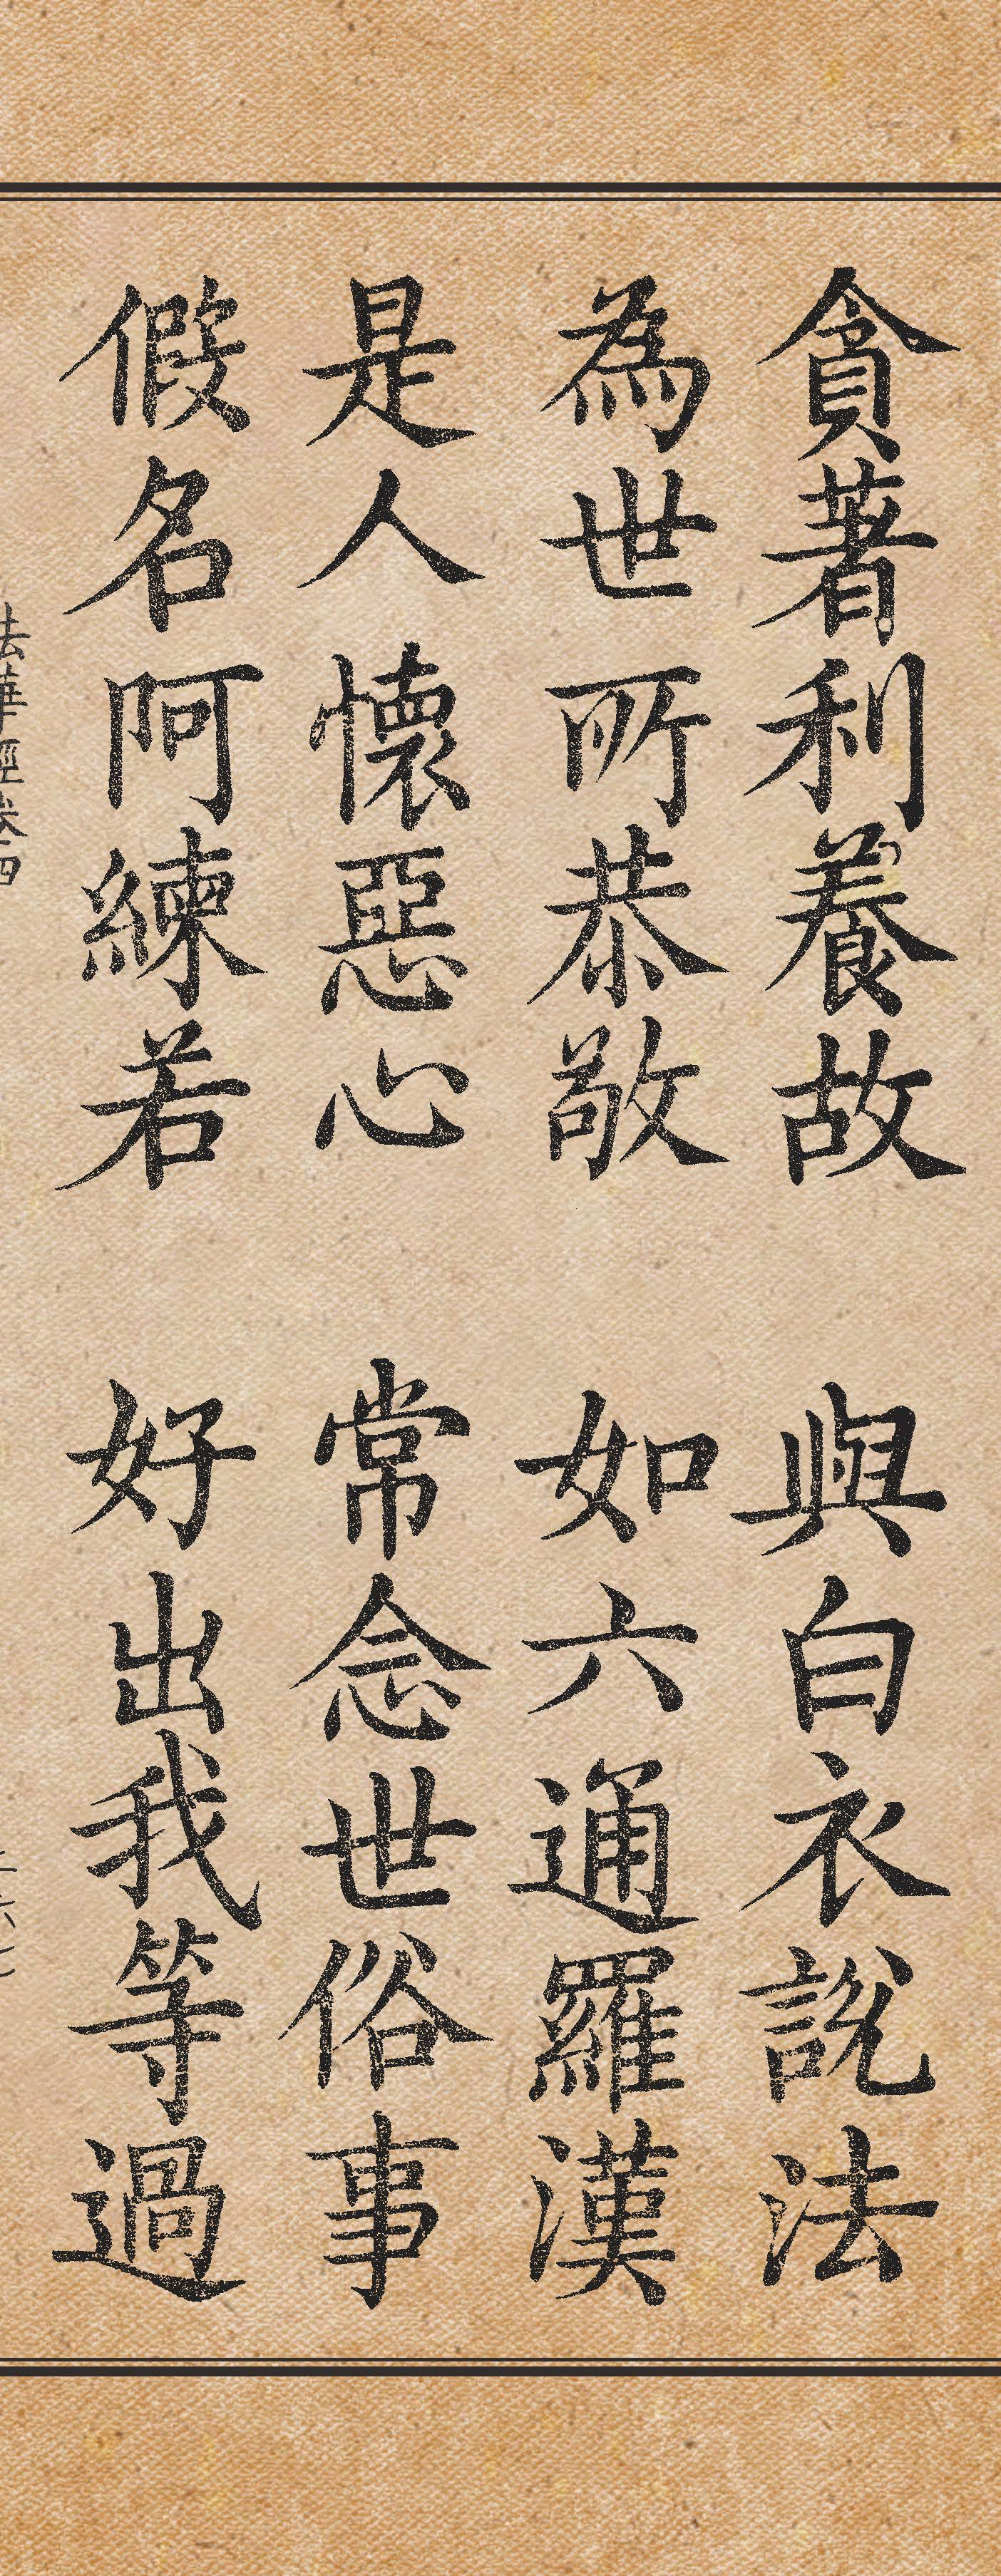 貪著利養故　與白衣說法
為世所恭敬　如六通羅漢
是人懷惡心　常念世俗事
假名阿練若　好出我等過
法華經卷四